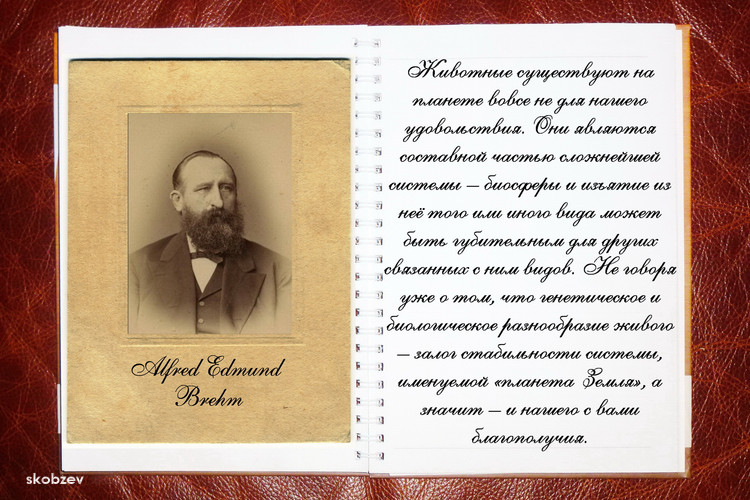 Alfred Edmund
Brehm
Животные существуют на
планете вовсе не для нашего
удовольствия. Они являются
составной частью сложнейшей
системы – биосферы и изъятие из
неё того или иного вида может
быть губительным для других
связанных с ним видов. Не говоря
уже о том, что генетическое и
биологическое разнообразие живого
– залог стабильности системы,
именуемой «планета Земля», а
значит – и нашего с вами
благополучия.
skobzev